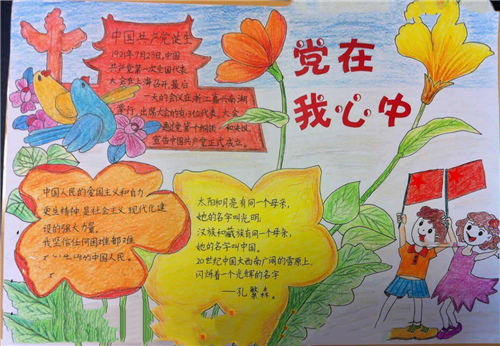 党在
我心中
中国共产党诞生
1921年7月23日,中国
共产党第一次全国代表
大会在上海召开,最后
一天的会议在浙江嘉兴南湖
举行,出席大会的有13位代表,大会
通过党第十纲领和决议,
宣告中国共产党正式成立。
中国人民的爱国主义和自力
更生精神,是社会主义现代化建
设的强大力量,
我坚信任何困难都难
的中国人民。
太阳和月亮有同一个母亲,
她的名字叫光明,
汉族和藏族有同一个母亲,
她的名字叫中国。
20世纪中国大西南广阔的雪原上,
闪烁着一个光辉的名字
——孔繁森。